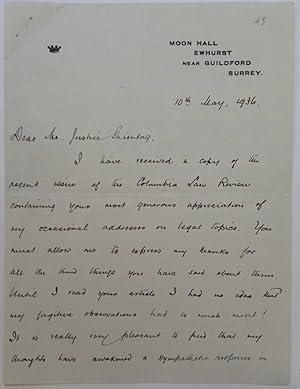 43
MOON HALL
EWHURST
NEAR GUILDFORD
SURREY.
10th May, 1936.
Dear Mr. Justice Shientag,
I have received a copy of the
recent issue of the Columbia Law Review
containing your most generous appreciation of
my occasional addresses on legal topics. You
must allow me to express my thanks for
all the kind things you have said about them.
Until I read your article I had no idea that
my fugitive observations had so much merit!
It is really very pleasant to find that my
thoughts have awakened a sympathetic response in